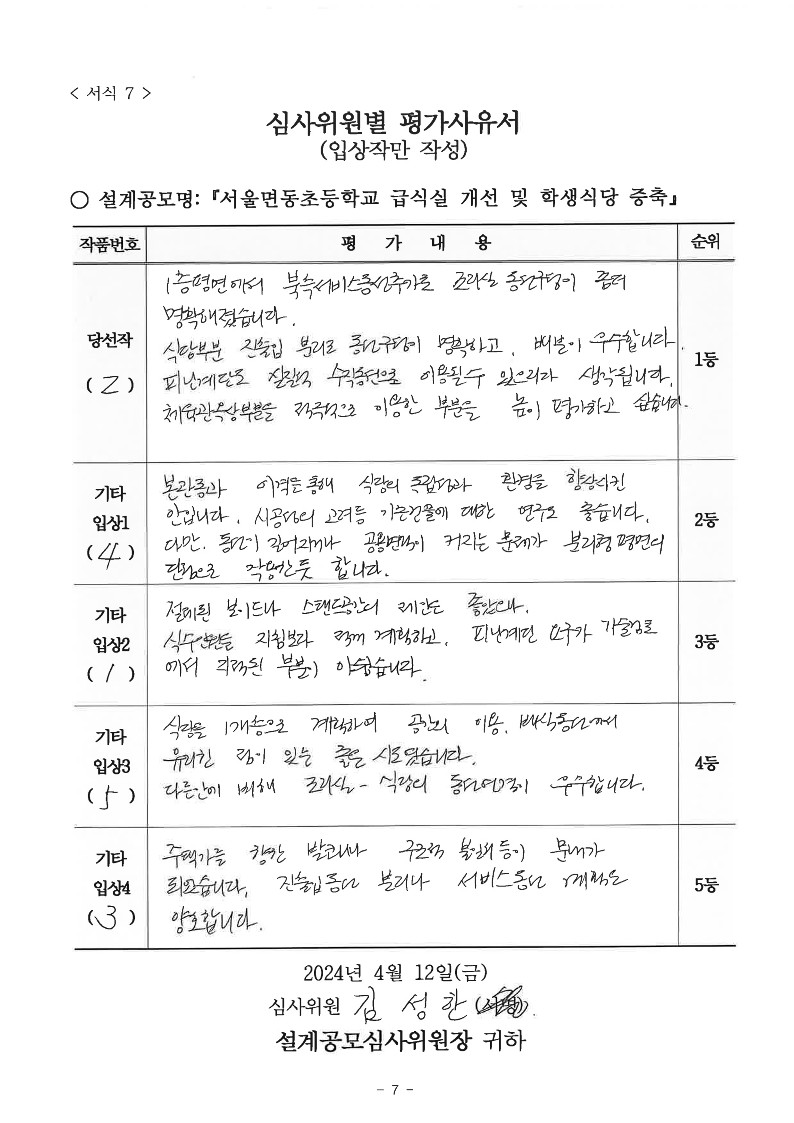 < 서식 7 >
심사위원별 평가사유서
(입상작만 작성)
○ 설계공모명:『서울면동초등학교 급식실 개선 및 학생식당 증축』
작품번호 평 가 내 용 순위
당선작
( 2 )
1층평면에서 북측서비스동선추가로 조리실 동선구성이 좀더
명확해졌습니다.
식당부분 진출입 분리로 동선구성이 명확하고, 배분이 우수합니다.
피난계단도 실질적 수직동선으로 이용될수 있으리라 생각됩니다.
체육관옥상부분을 적극적으로 이용한 부분을 높이 평가하고 싶습니다.
1등
기타
입상1
( 4 )
본관동과 이격을 통해 식당의 독립성과 환경을 향상시킨
안입니다. 시공성의 고려등 기존건물에 대한 연구도 좋습니다.
다만, 동선이 길어지거나 공용면적이 커지는 문제가 분리형평면의
단점으로 작용한듯 합니다.
2등
기타
입상2
( 1 )
절제된 보이드나 스탠드공간의 제안은 좋았으나,
식수인원을 지침보다 적게 계획하고, 피난계단 요구가
에서 지적된 부분이 아쉽습니다.
3등
기타
입상3
( 5 )
식당을 1개층으로 계획하여 공간의 이용, 배식동선에서
유리한 점이 있는 좋은 시도였습니다.
다른안에 비해 조리실 - 식당의 동선연결이 우수합니다.
4등
기타
입상4
( 3 )
주택가를 향한 발코니나 구조적 불합리등이 문제가
되었습니다. 진출입동선 분리나 서비스동선 계획은
양호합니다.
5등
2024년 4월 12일(금)
심사위원 김 성 한
설계공모심사위원장 귀하
- 7 -